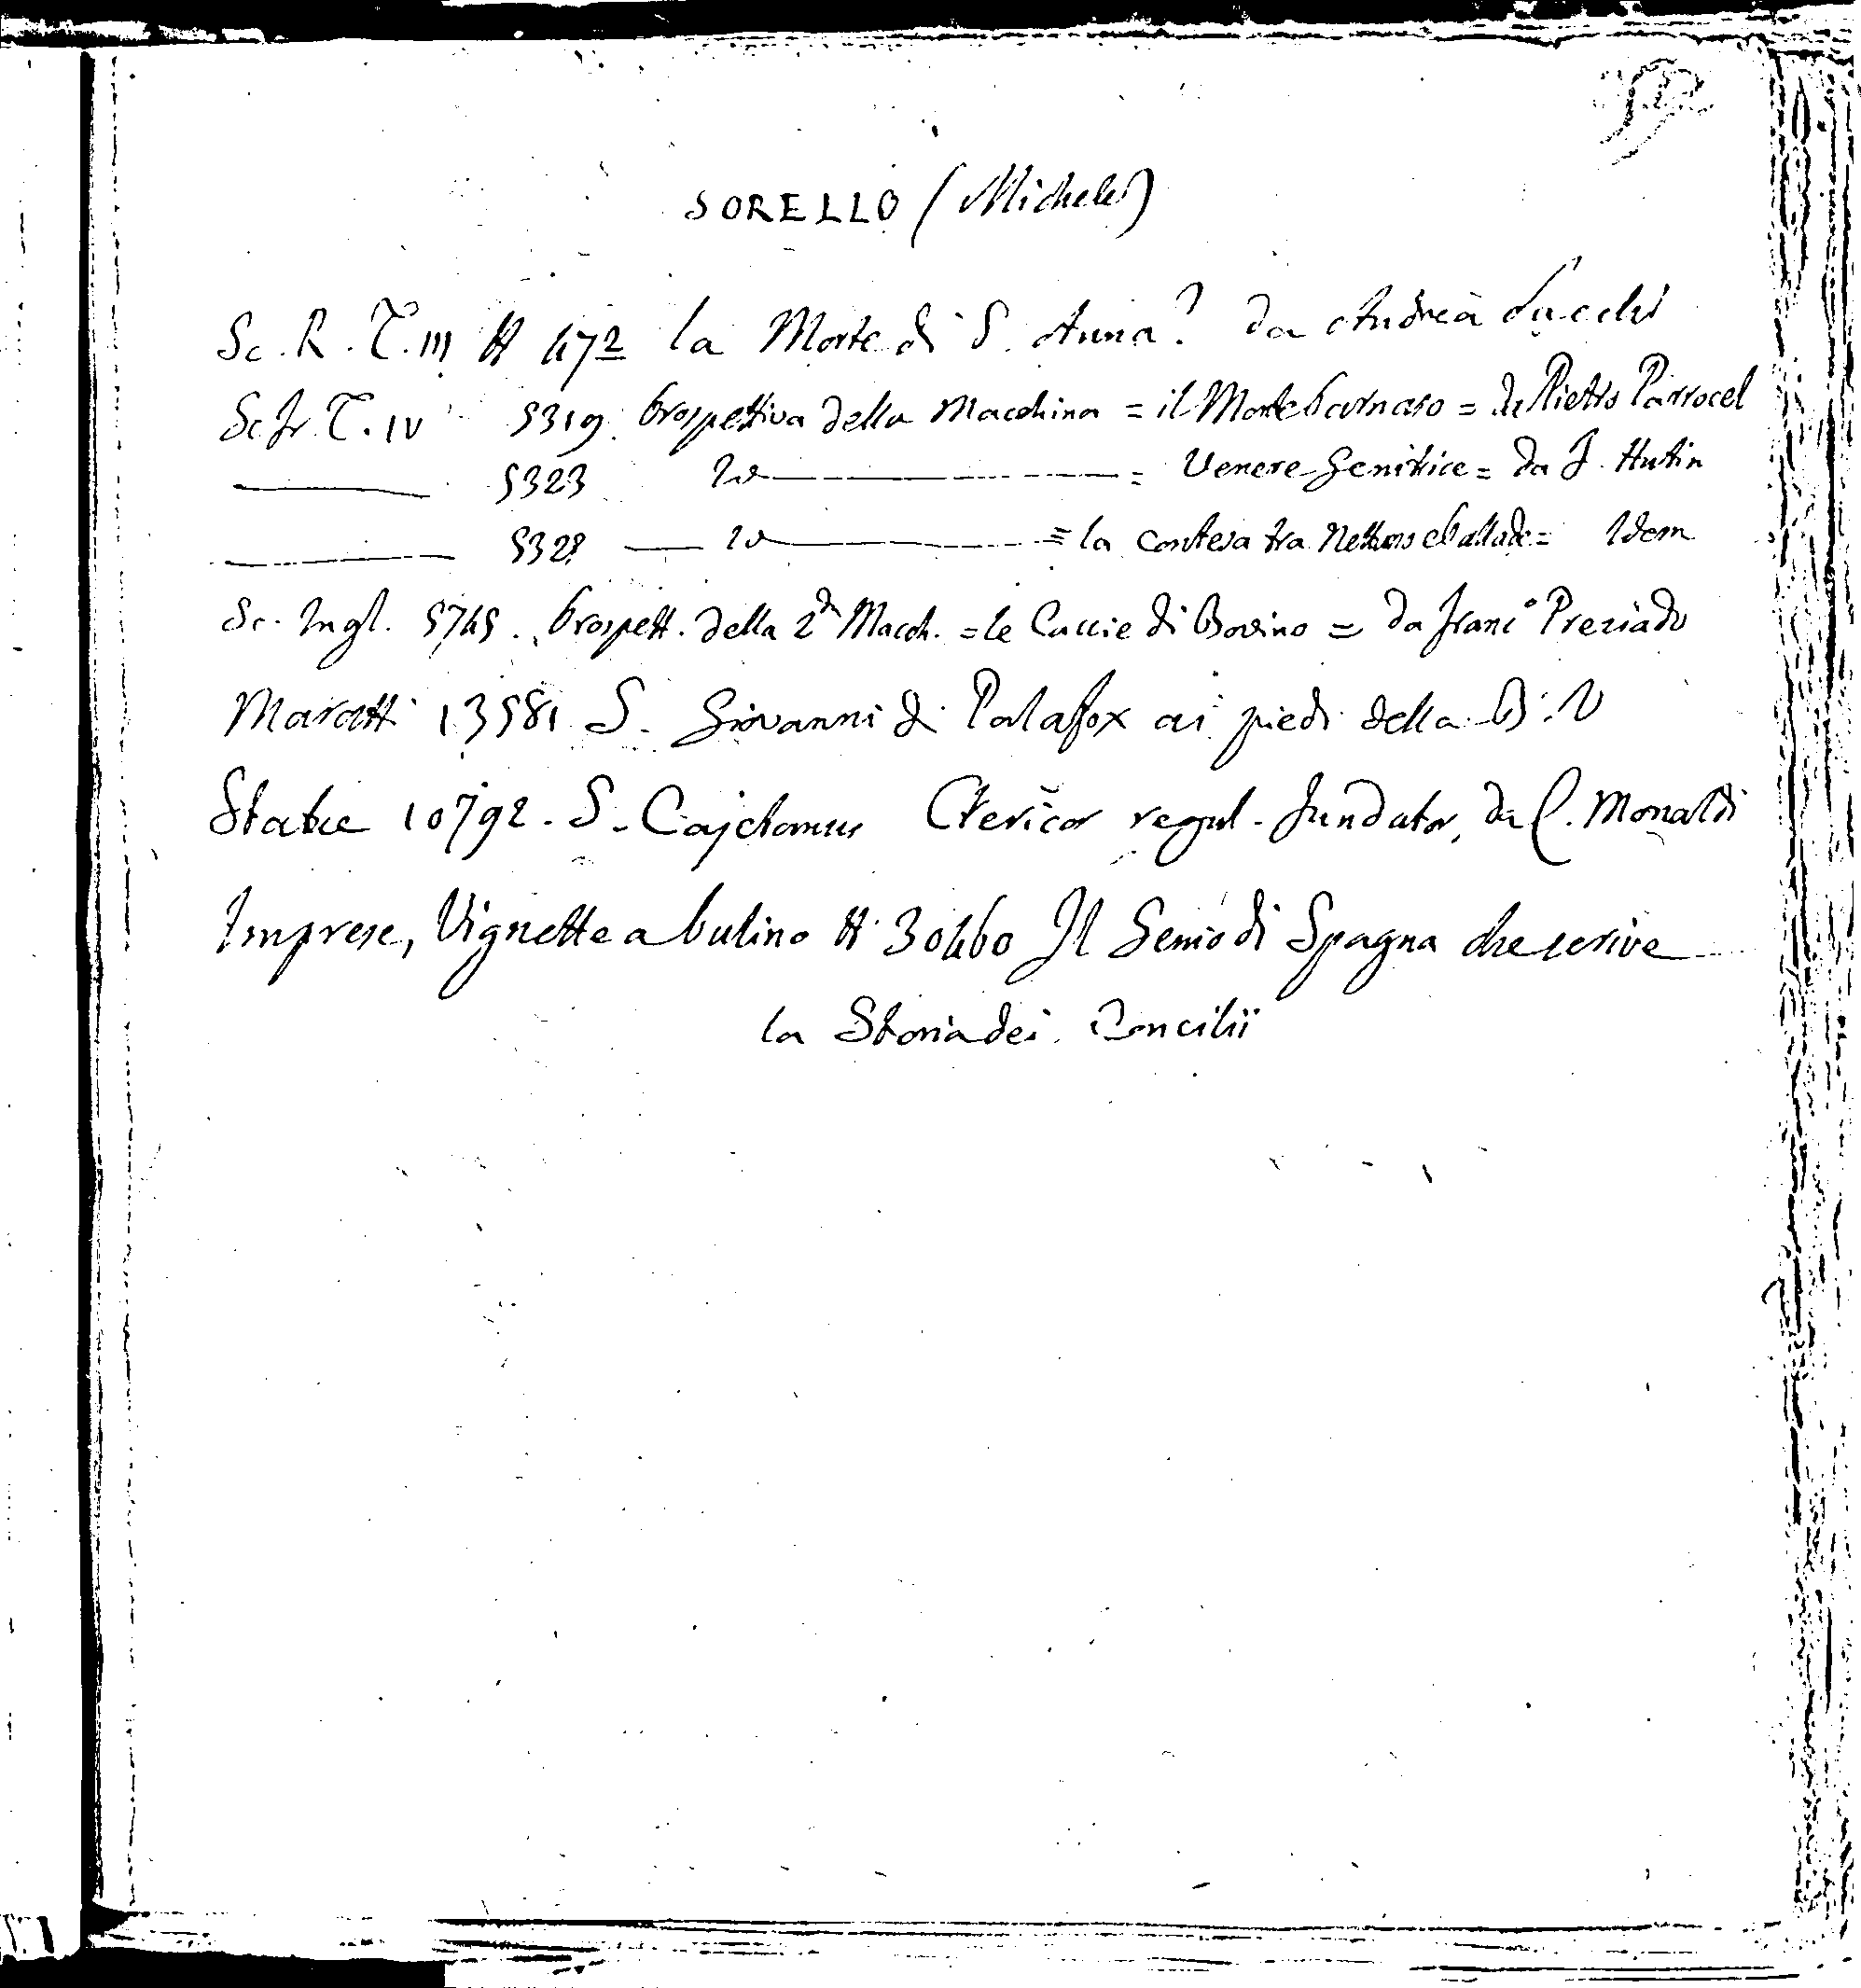 SORELLO (Michele)
Sc. R. T. III H 472 la Morte di S. Anna? da Andrea Sacchi
Sc. fr. T. IV 5319. Prospettiva della Macchina = il Monte Parnaso = da Pietro Parrocel
5323 Id = Venere Genitrice = da F. Hutin
5328 Id = la contesa tra Nettuno e Pallade = Idem
Sc. Ingl. 5745. Prospett. della 2da Macch. = le Caccie di Bovino = da Franco Preziado
Maratti 13581 S. Giovanni di Palafox ai piedi della B. V
Statue 10792. S. Cajetanus Clericor regul. fundator, da C. Monaldi
Imprese, Vignette a bulino H 30460 Il Genio di Spagna che scrive
la Storia dei Concilii